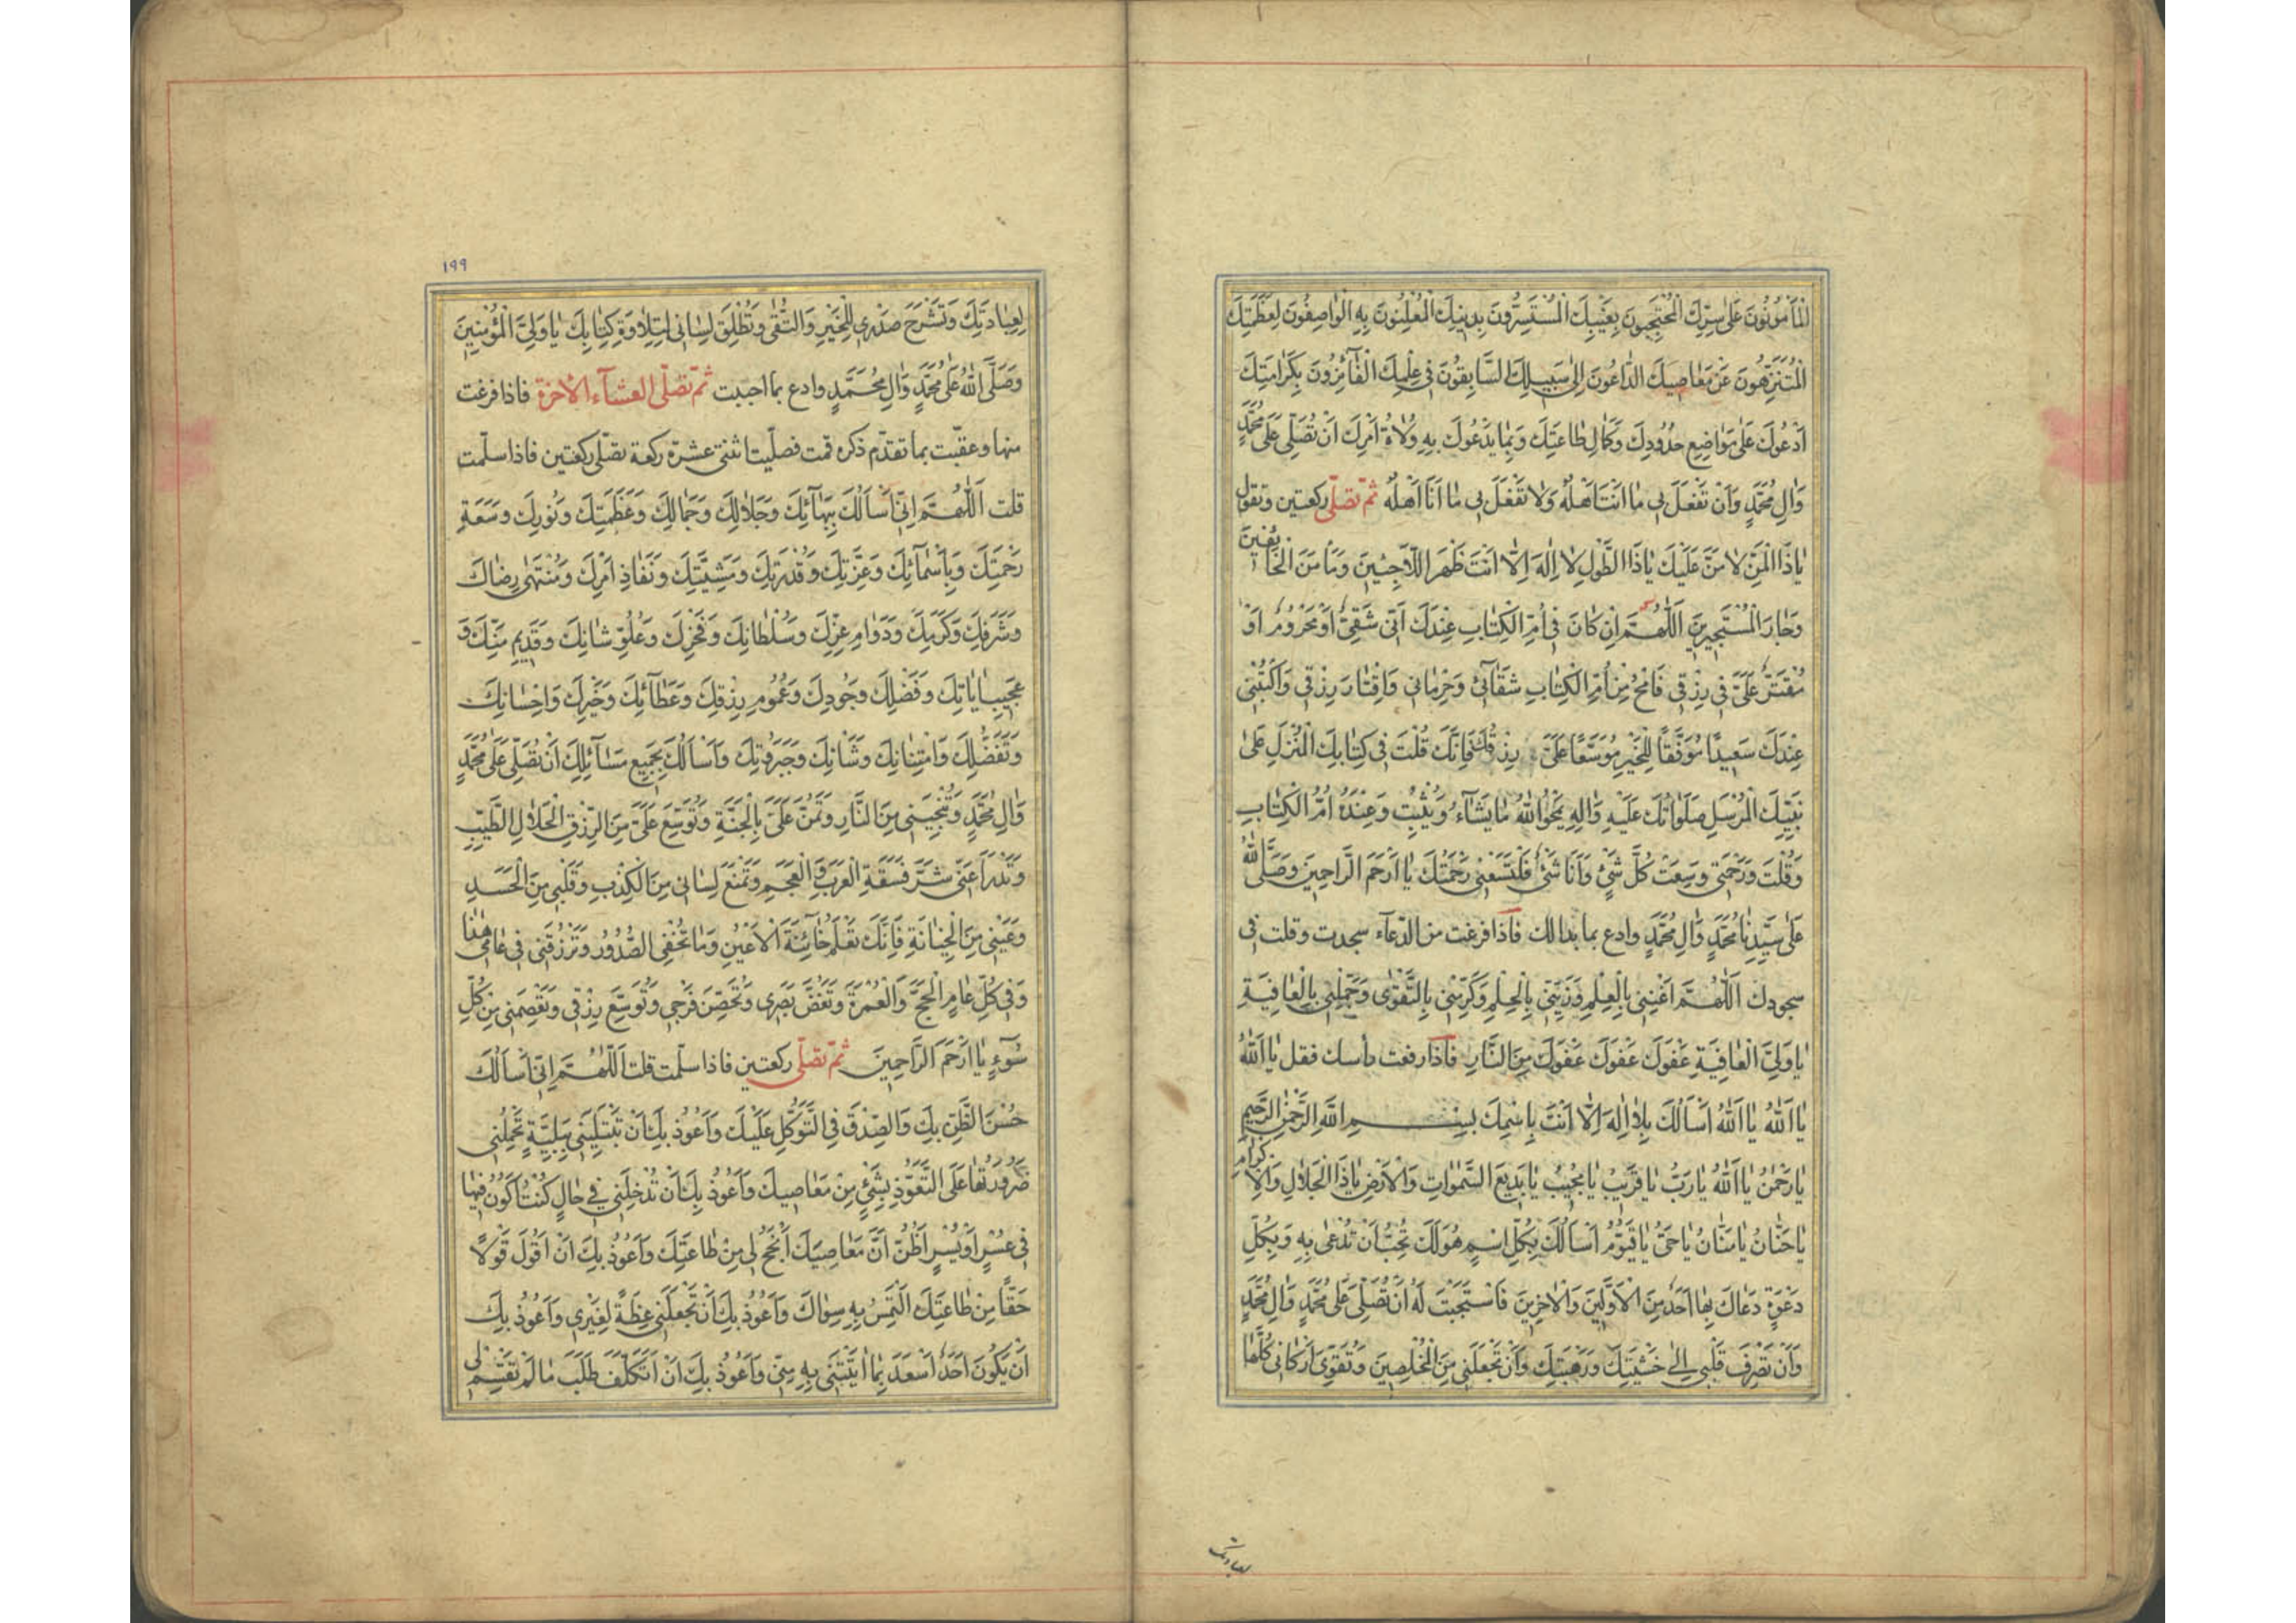 الْمَأْمُونُونَ عَلىٰ سِرِّكَ الْمُحْتَجِبُونَ بِغَيْبِكَ الْمُسْتَسِرُّونَ بِدِينِكَ الْمُعْلِنُونَ بِهِ الْوٰاصِفُونَ لِعَظَمَتِكَ
الْمُتَنَزِّهُونَ عَنْ مَعٰاصِيكَ الدّٰاعُونَ اِلىٰ سَبِيلِكَ السّٰابِقُونَ فى عِلْمِكَ الْفٰآئِزُونَ بِكَرٰامَتِكَ
اَدْعُوكَ عَلىٰ مَوٰاضِعِ حُدُودِكَ وَكَمٰالِ طٰاعَتِكَ وَبِمٰا يَدْعُوكَ بِهِ وُلٰاةُ اَمْرِكَ اَنْ تُصَلِّىَ عَلىٰ مُحَمَّدٍ
وَاٰلِ مُحَمَّدٍ وَاَنْ تَفْعَلَ بى مٰا اَنْتَ اَهْلُهُ وَلٰا تَفْعَلَ بى مٰا اَنَا اَهْلُهُ ثمّ تصلّى ركعتين وتقول
يٰا ذَا الْمَنِّ لٰا مَنَّ عَلَيْكَ يٰا ذَا الطَّوْلِ لٰا اِلٰهَ اِلّٰا اَنْتَ ظَهْرَ اللّٰاجِئينَ وَمَأْمَنَ الْخٰائِفينَ
وَجٰارَ الْمُسْتَجيرينَ اَللّٰهُمَّ اِنْ كٰانَ فى اُمِّ الْكِتٰابِ عِنْدَكَ اَنّى شَقِىٌّ اَوْ مَحْرُومٌ اَوْ
مُقْتَرٌ عَلَىَّ فى رِزْقى فَامْحُ مِنْ اُمِّ الْكِتٰابِ شَقٰآئى وَحِرْمٰانى وَاِقْتٰارَ رِزْقى وَاكْتُبْنى
عِنْدَكَ سَعيدًا مُوَفَّقًا لِلْخَيْرِ مُوَسَّعًا عَلَىَّ رِزْقُكَ فَاِنَّكَ قُلْتَ فى كِتٰابِكَ الْمُنْزَلِ عَلىٰ
نَبِيِّكَ الْمُرْسَلِ صَلَوٰاتُكَ عَلَيْهِ وَاٰلِهِ يَمْحُوا اللّٰهُ مٰا يَشٰآءُ وَيُثْبِتُ وَعِنْدَهُ اُمُّ الْكِتٰابِ
وَقُلْتَ وَرَحْمَتى وَسِعَتْ كُلَّ شَىْءٍ وَاَنَا شَىْءٌ فَلْتَسَعْنى رَحْمَتُكَ يٰا اَرْحَمَ الرّٰاحِمينَ وَصَلَّى اللّٰهُ
عَلىٰ سَيِّدِنٰا مُحَمَّدٍ وَاٰلِ مُحَمَّدٍ وادع بما بدالك فاذا فرغت من الدّعآء سجدت وقلت فى
سجودك اَللّٰهُمَّ اَغْنِنى بِالْعِلْمِ وَزَيِّنّى بِالْحِلْمِ وَكَرِّمْنى بِالتَّقْوٰى وَجَمِّلْنى بِالْعٰافِيَةِ
يٰا وَلِىَّ الْعٰافِيَةِ عَفْوَكَ عَفْوَكَ عَفْوَكَ مِنَ النّٰارِ فاذا رفعت رأسك فقل يٰا اَللّٰهُ
يٰا اَللّٰهُ يٰا اَللّٰهُ اَسْأَلُكَ بِلٰا اِلٰهَ اِلّٰا اَنْتَ بِاسْمِكَ بِسْمِ اللّٰهِ الرَّحْمٰنِ الرَّحيمِ
يٰا رَحْمٰنُ يٰا اَللّٰهُ يٰا رَبُّ يٰا قَريبُ يٰا مُجيبُ يٰا بَديعَ السَّمٰوٰاتِ وَالْاَرْضِ يٰا ذَا الْجَلٰالِ وَالْاِكْرٰامِ
يٰا حَنّٰانُ يٰا مَنّٰانُ يٰا حَىُّ يٰا قَيُّومُ اَسْأَلُكَ بِكُلِّ اِسْمٍ هُوَ لَكَ تُحِبُّ اَنْ تُدْعىٰ بِهِ وَبِكُلِّ
دَعْوَةٍ دَعٰاكَ بِهٰا اَحَدٌ مِنَ الْاَوَّلينَ وَالْاٰخِرينَ فَاسْتَجَبْتَ لَهُ اَنْ تُصَلِّىَ عَلىٰ مُحَمَّدٍ وَاٰلِ مُحَمَّدٍ
وَاَنْ تَصْرِفَ قَلْبى اِلىٰ خَشْيَتِكَ وَرَهْبَتِكَ وَاَنْ تَجْعَلَنى مِنَ الْمُخْلِصينَ وَتُقَوِّىَ اَرْكٰانى كُلَّهٰا
لعبادتك
١٩٩
لِعِبٰادَتِكَ وَتَشْرَحَ صَدْرى لِلْخَيْرِ وَالتُّقىٰ وَتُطْلِقَ لِسٰانى لِتِلٰاوَةِ كِتٰابِكَ يٰا وَلِىَّ الْمُؤْمِنينَ
وَصَلَّى اللّٰهُ عَلىٰ مُحَمَّدٍ وَاٰلِ مُحَمَّدٍ وادع بما احببت ثمّ تصلّى العشآء الاخرة فاذا فرغت
منها وعقّبت بما تقدّم ذكره قمت فصلّيت اثنتى عشرة ركعة تصلّى ركعتين فاذا سلّمت
قلت اَللّٰهُمَّ اِنّى اَسْأَلُكَ بِبَهٰآئِكَ وَجَلٰالِكَ وَجَمٰالِكَ وَعَظَمَتِكَ وَنُورِكَ وَسَعَةِ
رَحْمَتِكَ وَبِاَسْمٰآئِكَ وَعِزَّتِكَ وَقُدْرَتِكَ وَمَشِيَّتِكَ وَنَفٰاذِ اَمْرِكَ وَمُنْتَهىٰ رِضٰاكَ
وَشَرَفِكَ وَكَرَمِكَ وَدَوٰامِ عِزِّكَ وَسُلْطٰانِكَ وَفَخْرِكَ وَعُلُوِّ شٰانِكَ وَقَديمِ مَنِّكَ وَ
عَجيبِ اٰيٰاتِكَ وَفَضْلِكَ وَجُودِكَ وَعُمُومِ رِزْقِكَ وَعَطٰآئِكَ وَخَيْرِكَ وَاِحْسٰانِكَ
وَتَفَضُّلِكَ وَامْتِنٰانِكَ وَشَأْنِكَ وَجَبَرُوتِكَ وَاَسْأَلُكَ بِجَميعِ مَسٰآئِلِكَ اَنْ تُصَلِّىَ عَلىٰ مُحَمَّدٍ
وَاٰلِ مُحَمَّدٍ وَتُنْجِيَنى مِنَ النّٰارِ وَتَمُنَّ عَلَىَّ بِالْجَنَّةِ وَتُوَسِّعَ عَلَىَّ مِنَ الرِّزْقِ الْحَلٰالِ الطَّيِّبِ
وَتَدْرَأَ عَنّى شَرَّ فَسَقَةِ الْعَرَبِ وَالْعَجَمِ وَتَمْنَعَ لِسٰانى مِنَ الْكِذْبِ وَقَلْبى مِنَ الْحَسَدِ
وَعَيْنى مِنَ الْخِيٰانَةِ فَاِنَّكَ تَعْلَمُ خٰآئِنَةَ الْاَعْيُنِ وَمٰا تُخْفِى الصُّدُورُ وَتَرْزُقَنى فى عٰامى هٰذٰا
وَفى كُلِّ عٰامٍ الْحَجَّ وَالْعُمْرَةَ وَتَغُضَّ بَصَرى وَتُحَصِّنَ فَرْجى وَتُوَسِّعَ رِزْقى وَتَعْصِمَنى مِنْ كُلِّ
سُوٓءٍ يٰا اَرْحَمَ الرّٰاحِمينَ ثمّ تصلّى ركعتين فاذا سلّمت قلت اَللّٰهُمَّ اِنّى اَسْأَلُكَ
حُسْنَ الظَّنِّ بِكَ وَالصِّدْقَ فِى التَّوَكُّلِ عَلَيْكَ وَاَعُوذُ بِكَ اَنْ تَبْتَلِيَنى بِبَلِيَّةٍ تَحْمِلُنى
ضَرُورَتُهٰا عَلَى التَّعَوُّذِ بِشَىْءٍ مِنْ مَعٰاصيكَ وَاَعُوذُ بِكَ اَنْ تُدْخِلَنى فى حٰالٍ كُنْتُ اَكُونُ فيهٰا
فى عُسْرٍ اَوْ يُسْرٍ اَظُنُّ اَنَّ مَعٰاصِيَكَ اَنْجَحُ لى مِنْ طٰاعَتِكَ وَاَعُوذُ بِكَ اَنْ اَقُولَ قَوْلًا
حَقًّا مِنْ طٰاعَتِكَ اَلْتَمِسُ بِهِ سِوٰاكَ وَاَعُوذُ بِكَ اَنْ تَجْعَلَنى عِظَةً لِغَيْرى وَاَعُوذُ بِكَ
اَنْ يَكُونَ اَحَدٌ اَسْعَدَ بِمٰا اٰتَيْتَنى بِهِ مِنّى وَاَعُوذُ بِكَ اَنْ اَتَكَلَّفَ طَلَبَ مٰا لَمْ تَقْسِمْ لى